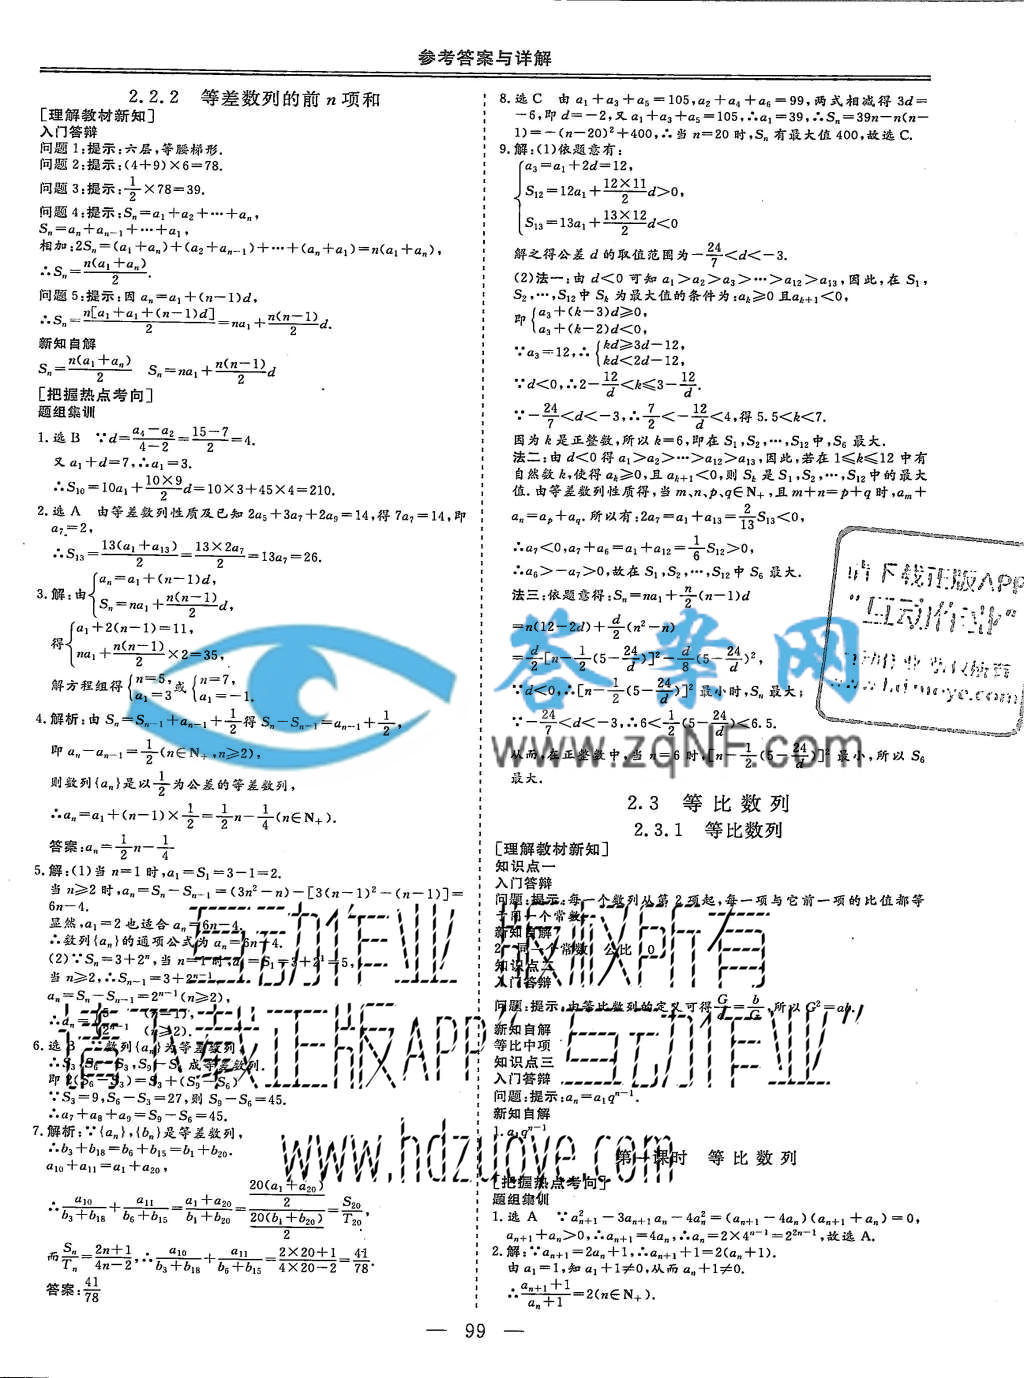 参考答案与详解
2.2.2 等差数列的前 n 项和
[理解教材新知]
入门答辩
问题 1:提示:六层,等腰梯形.
问题 2:提示:(4+9)×6=78.
问题 3:提示:1/2×78=39.
问题 4:提示:Sₙ=a₁+a₂+…+aₙ,
Sₙ=aₙ+aₙ₋₁+…+a₁,
相加:2Sₙ=(a₁+aₙ)+(a₂+aₙ₋₁)+…+(aₙ+a₁)=n(a₁+aₙ),
∴Sₙ=n(a₁+aₙ)/2.
问题 5:提示:因 aₙ=a₁+(n-1)d,
∴Sₙ=n[a₁+a₁+(n-1)d]/2=na₁+n(n-1)/2 d.
新知自解
Sₙ=n(a₁+aₙ)/2 Sₙ=na₁+n(n-1)/2 d
[把握热点考向]
题组集训
1.选 B ∵d=(a₄-a₂)/(4-2)=(15-7)/2=4.
又 a₁+d=7,∴a₁=3.
∴S₁₀=10a₁+10×9/2 d=10×3+45×4=210.
2.选 A 由等差数列性质及已知 2a₅+3a₇+2a₉=14,得 7a₇=14,即
a₇=2,
∴S₁₃=13(a₁+a₁₃)/2=13×2a₇/2=13a₇=26.
3.解:由{aₙ=a₁+(n-1)d,
Sₙ=na₁+n(n-1)/2 d,
得{a₁+2(n-1)=11,
na₁+n(n-1)/2×2=35,
解方程组得{n=5, a₁=3 或{n=7, a₁=-1.
4.解析:由 Sₙ=Sₙ₋₁+aₙ₋₁+1/2得 Sₙ-Sₙ₋₁=aₙ₋₁+1/2,
即 aₙ-aₙ₋₁=1/2(n∈N₊,n≥2),
则数列{aₙ}是以1/2为公差的等差数列,
∴aₙ=a₁+(n-1)×1/2=1/2n-1/4(n∈N₊).
答案:aₙ=1/2n-1/4
5.解:(1)当 n=1 时,a₁=S₁=3-1=2.
当 n≥2 时,aₙ=Sₙ-Sₙ₋₁=(3n²-n)-[3(n-1)²-(n-1)]=
6n-4.
显然,a₁=2 也适合 aₙ=6n-4,
∴数列{aₙ}的通项公式为 aₙ=6n-4.
(2)∵Sₙ=3+2ⁿ,当 n=1 时,a₁=S₁=3+2¹=5,
当 n≥2,∴Sₙ₋₁=3+2ⁿ⁻¹
aₙ=Sₙ-Sₙ₋₁=2ⁿ⁻¹(n≥2),
∴aₙ={5 (n=1),
2ⁿ⁻¹ (n≥2).
6.选 B ∵数列{aₙ}为等差数列
∴S₃,S₆-S₃,S₉-S₆ 成等差数列.
即 2(S₆-S₃)=S₃+(S₉-S₆)
∵S₃=9,S₆-S₃=27,则 S₉-S₆=45.
∴a₇+a₈+a₉=S₉-S₆=45.
7.解析:∵{aₙ},{bₙ}是等差数列,
∴b₃+b₁₈=b₆+b₁₅=b₁+b₂₀.
a₁₀+a₁₁=a₁+a₂₀,
∴a₁₀/(b₃+b₁₈)+a₁₁/(b₆+b₁₅)=(a₁+a₂₀)/(b₁+b₂₀)=[20(a₁+a₂₀)/2]/[20(b₁+b₂₀)/2]=S₂₀/T₂₀,
而Sₙ/Tₙ=(2n+1)/(4n-2),∴a₁₀/(b₃+b₁₈)+a₁₁/(b₆+b₁₅)=(2×20+1)/(4×20-2)=41/78.
答案:41/78
8.选 C 由 a₁+a₃+a₅=105,a₂+a₄+a₆=99,两式相减得 3d=
-6,即 d=-2,又 a₁+a₃+a₅=105,∴a₁=39,∴Sₙ=39n-n(n-
1)=-(n-20)²+400,∴当 n=20 时,Sₙ 有最大值 400,故选 C.
9.解:(1)依题意有:
{a₃=a₁+2d=12,
S₁₂=12a₁+12×11/2 d>0,
S₁₃=13a₁+13×12/2 d<0
解之得公差 d 的取值范围为-24/7<d<-3.
(2)法一:由 d<0 可知 a₁>a₂>a₃>…>a₁₂>a₁₃,因此,在 S₁,
S₂,…,S₁₂中 Sₖ 为最大值的条件为:aₖ≥0 且aₖ₊₁<0,
即{a₃+(k-3)d≥0,
a₃+(k-2)d<0,
∵a₃=12,∴{kd≥3d-12,
kd<2d-12,
∵d<0,∴2-12/d<k≤3-12/d.
∵-24/7<d<-3,∴7/2<-12/d<4,得 5.5<k<7.
因为 k 是正整数,所以 k=6,即在 S₁,S₂,…,S₁₂中,S₆ 最大.
法二:由 d<0 得 a₁>a₂>…>a₁₂>a₁₃,因此,若在 1≤k≤12 中有
自然数 k,使得 aₖ≥0,且 aₖ₊₁<0,则 Sₖ 是 S₁,S₂,…,S₁₂中的最大
值.由等差数列性质得,当 m、n、p、q∈N₊,且 m+n=p+q 时,aₘ+
aₙ=aₚ+a_q.所以有:2a₇=a₁+a₁₃=2/13 S₁₃<0,
∴a₇<0,a₇+a₆=a₁+a₁₂=1/6 S₁₂>0,
∴a₆>-a₇>0,故在 S₁,S₂,…,S₁₂中 S₆ 最大.
法三:依题意得:Sₙ=na₁+n/2(n-1)d
=n(12-2d)+d/2(n²-n)
=d/2[n-1/2(5-24/d)]²-d/8(5-24/d)²,
∵d<0,∴[n-1/2(5-24/d)]²最小时,Sₙ 最大;
∵-24/7<d<-3,∴6<1/2(5-24/d)<6.5.
从而,在正整数中,当 n=6 时,[n-1/2(5-24/d)]²最小,所以 S₆
最大.
2.3 等比数列
2.3.1 等比数列
[理解教材新知]
知识点一
入门答辩
问题:提示:每一个数列从第 2 项起,每一项与它前一项的比值都等
于同一个常数.
新知自解
2 同一个常数 公比 0
知识点二
入门答辩
问题:提示:由等比数列的定义可得G/a=b/G,所以 G²=ab.
新知自解
等比中项
知识点三
入门答辩
问题:提示:aₙ=a₁qⁿ⁻¹.
新知自解
1.a₁qⁿ⁻¹
第一课时 等比数列
[把握热点考向]
题组集训
1.选 A ∵a²ₙ₊₁-3aₙ₊₁aₙ-4a²ₙ=(aₙ₊₁-4aₙ)(aₙ₊₁+aₙ)=0,
aₙ₊₁+aₙ>0,∴aₙ₊₁=4aₙ,∴aₙ=2×4ⁿ⁻¹=2²ⁿ⁻¹,故选 A.
2.解:∵aₙ₊₁=2aₙ+1,∴aₙ₊₁+1=2(aₙ+1).
由 a₁=1,知 a₁+1≠0,从而 aₙ+1≠0.
∴(aₙ₊₁+1)/(aₙ+1)=2(n∈N₊).
— 99 —
答案网
www.zqNF.com
互动作业 版权所有
请下载正版APP“互动作业”
www.hdzuoye.com
请下载正版APP
“互动作业”